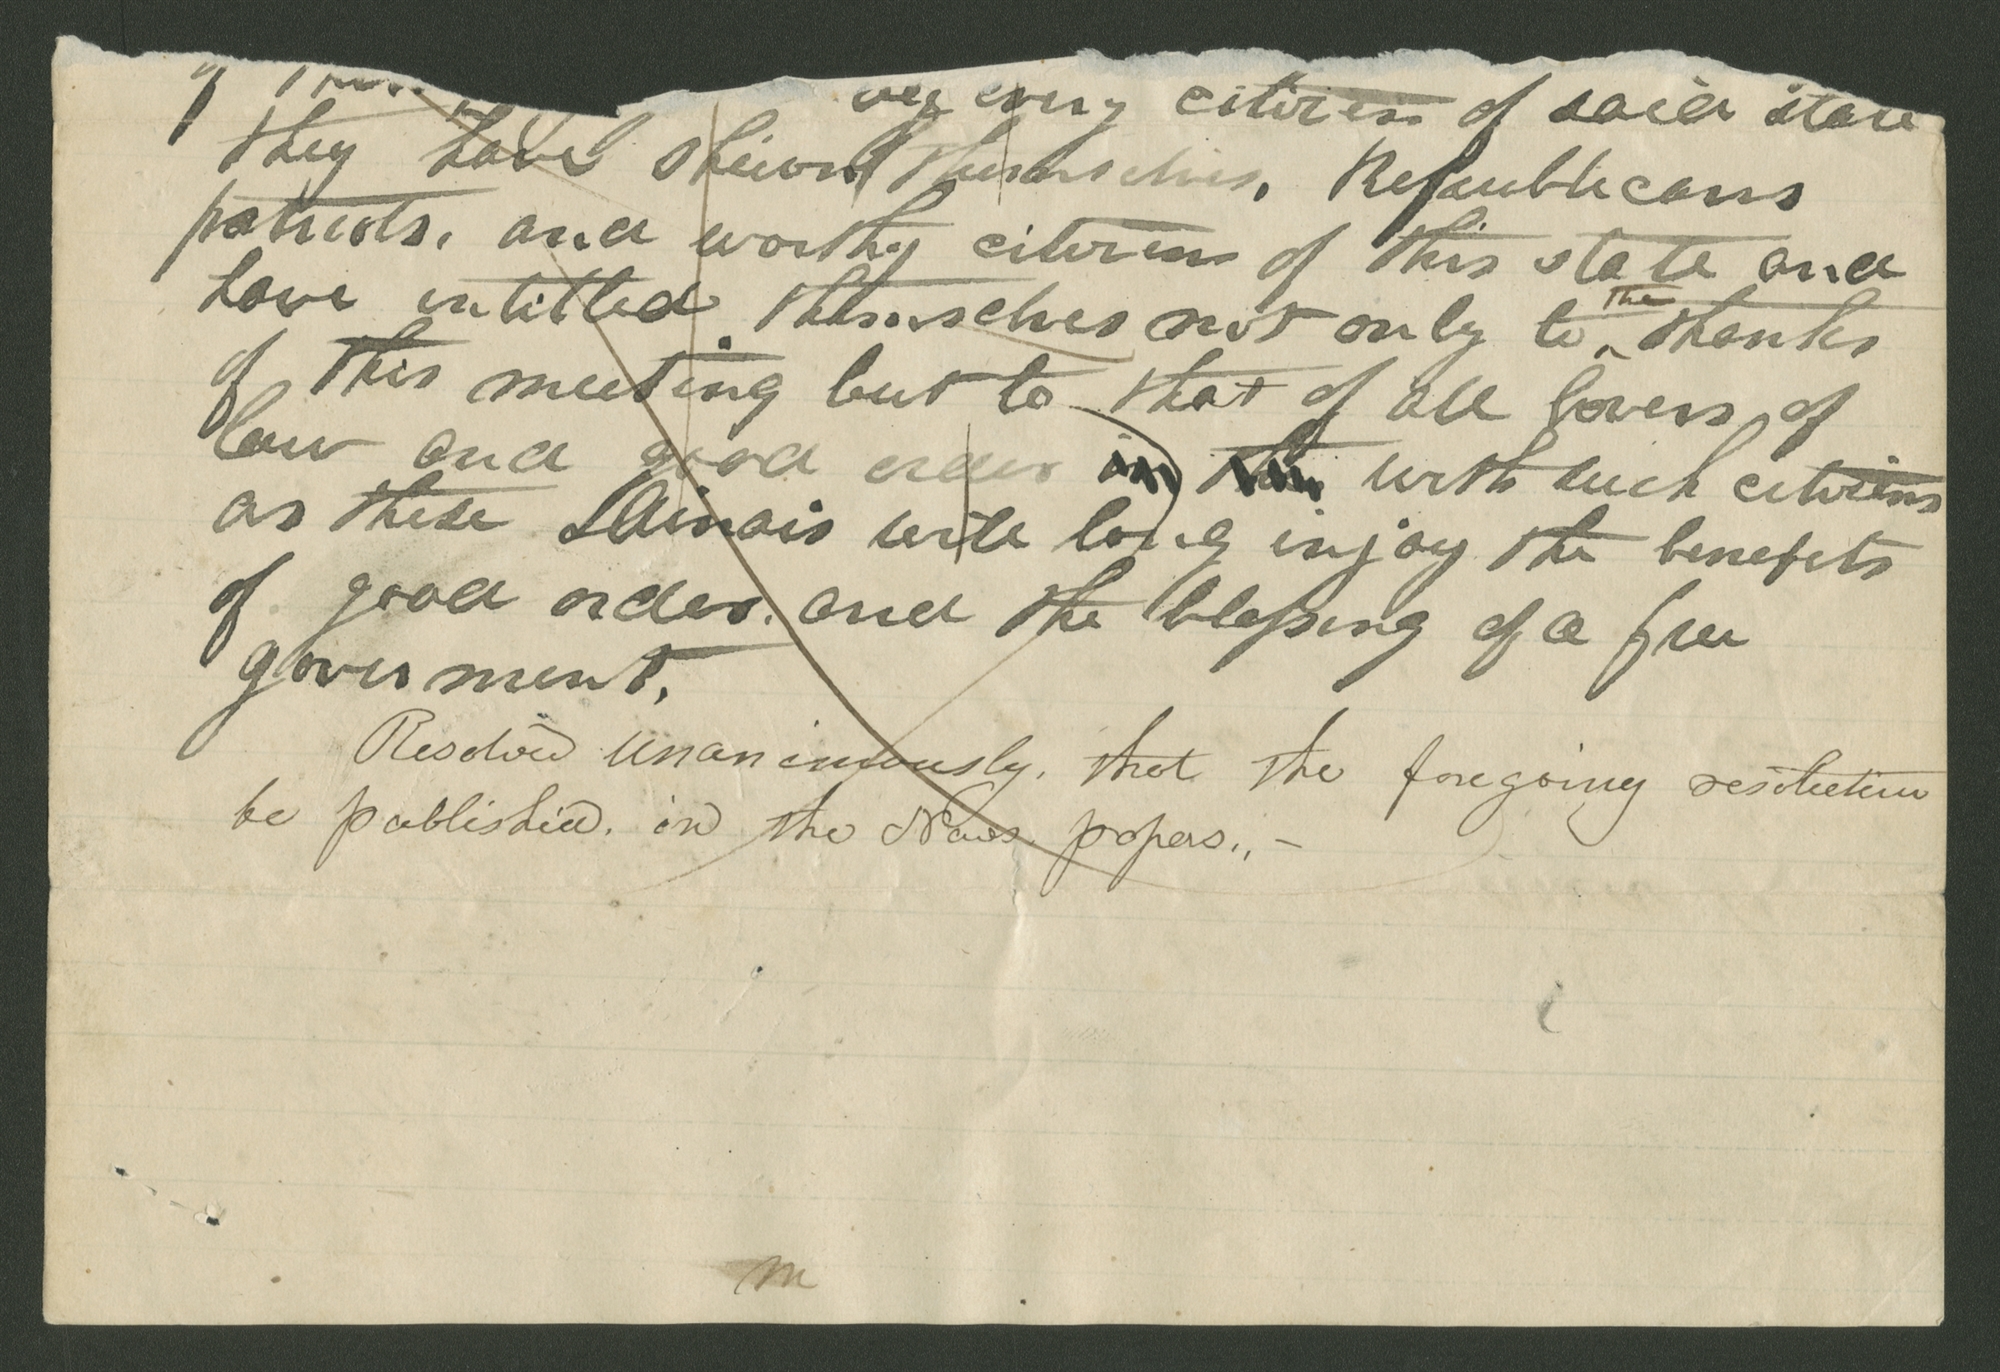 of every citizen of said state
they have shewn themselves, Republicans
patriots, and worthy citizens of this state and
have intitled themselves not only to the thanks
of this meeting but to that of all lovers of
law and good order in with such citizens
as these Illinois will long injoy the benefits
of good order, and the blessing of a free
goverment,
Resolved unanimously, that the foregoing resolution
be published, in the News papers,, -
m